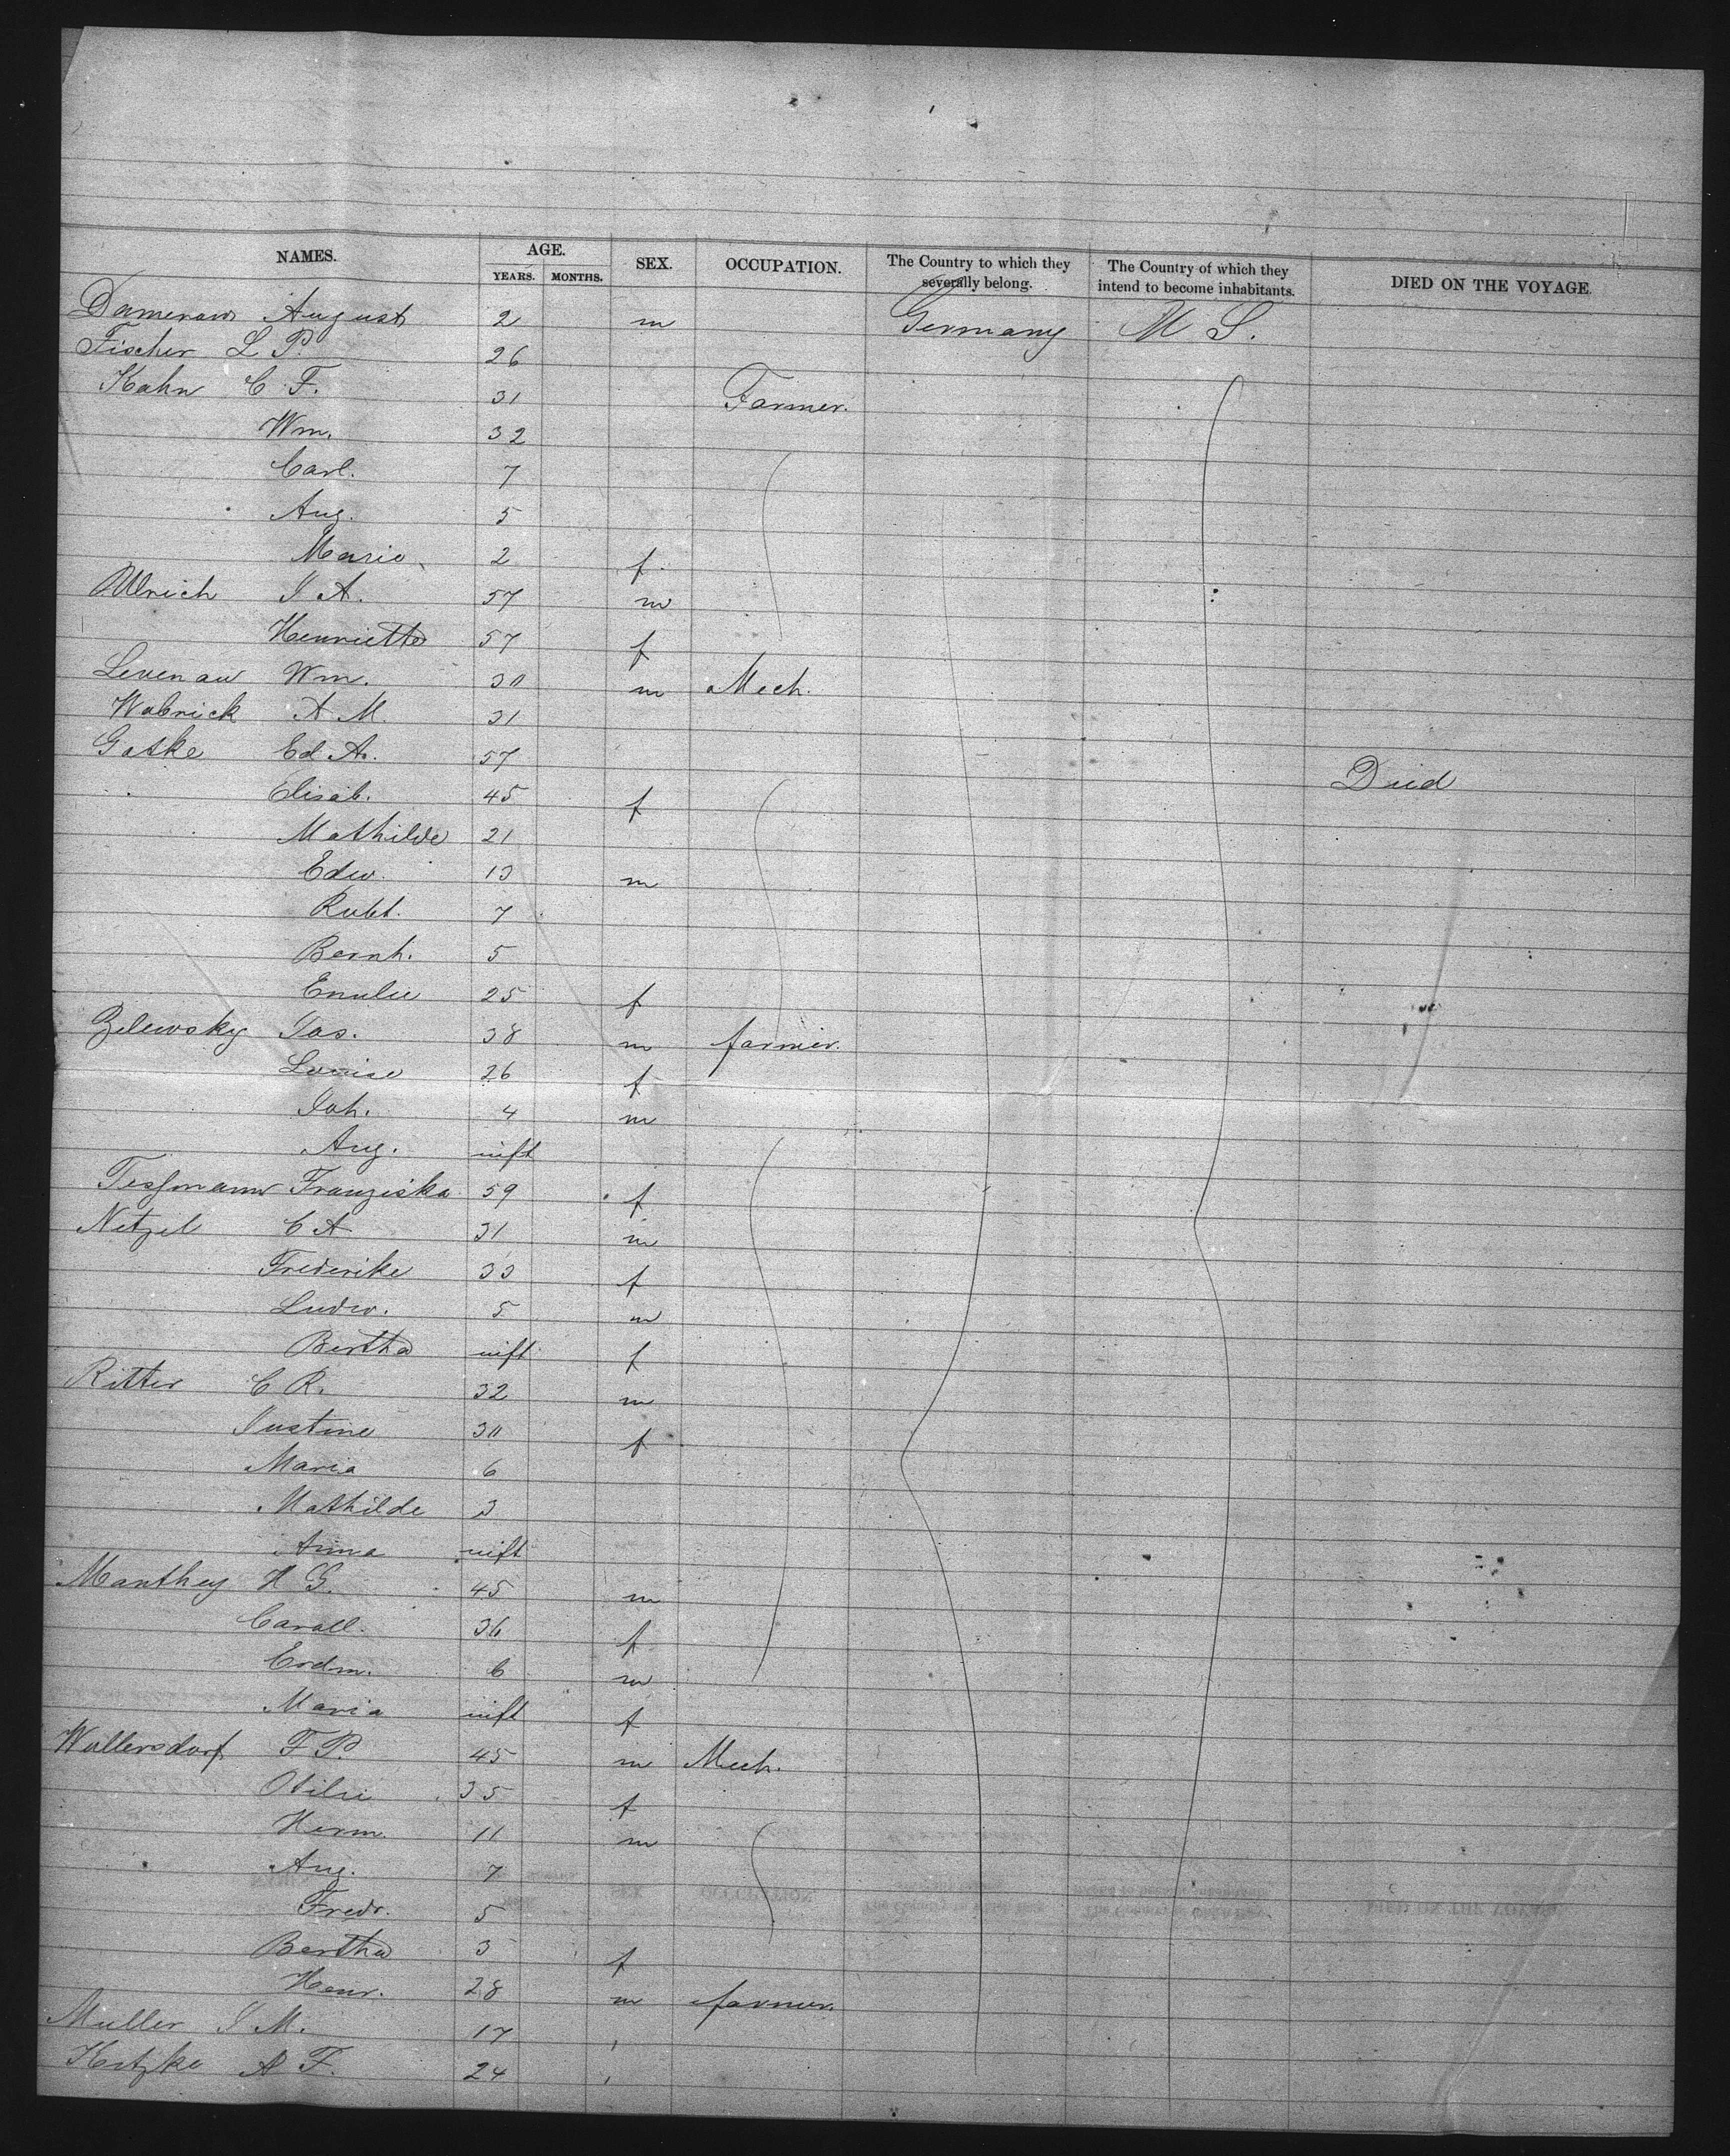 NAMES. AGE. SEX. OCCUPATION. The Country to which they severally belong. The Country of which they intend to become inhabitants. DIED ON THE VOYAGE.
YEARS. MONTHS.
Damerow August 2 m Germany U S.
Fischer L P. 26
Kahn C F. 31 Farmer.
Wm. 32
Carl. 7
Aug. 5
Marie 2 f
Ulrich J A. 57 m
Henrietta 57 f
Levenau Wm. 30 m Mech.
Wabrick A M. 31
Gatke Ed A. 57 Died
Elisab. 45 f
Mathilde 21
Edw. 13 m
Robt. 7
Bernh. 5
Emilie 25 f
Zelewsky Jos. 38 m farmer.
Louise 26 f
Joh. 4 m
Aug. inft
Tessmann Franziska 59 f
Netzel C A 31 m
Frederike 33 f
Ludw. 5 m
Bertha inft f
Ritter C R. 32 m
Justine 30 f
Maria 6
Mathilde 3
Anna inft
Manthey H G. 45 m
Caroll. 36 f
Erdm. 6 m
Maria inft f
Wullersdorf F P. 45 m Mech.
Otilie 35 f
Herm. 11 m
Aug. 7
Fredr. 5
Bertha 3 f
Henr. 28 m farmer.
Muller J M. 17
Kutzke A F. 24